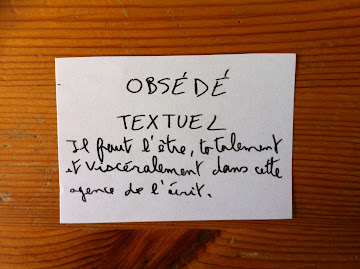 OBSÉDÉ
TEXTUEL
Il faut l'être, totalement
et viscéralement dans cette
agence de l'écrit.